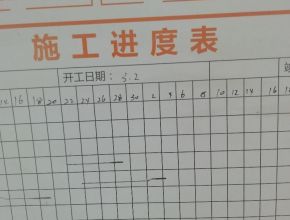 施工进度表
开工日期：5.2
14 16 18 20 22 24 26 28 30 2 4 6 8 10 12 14 16